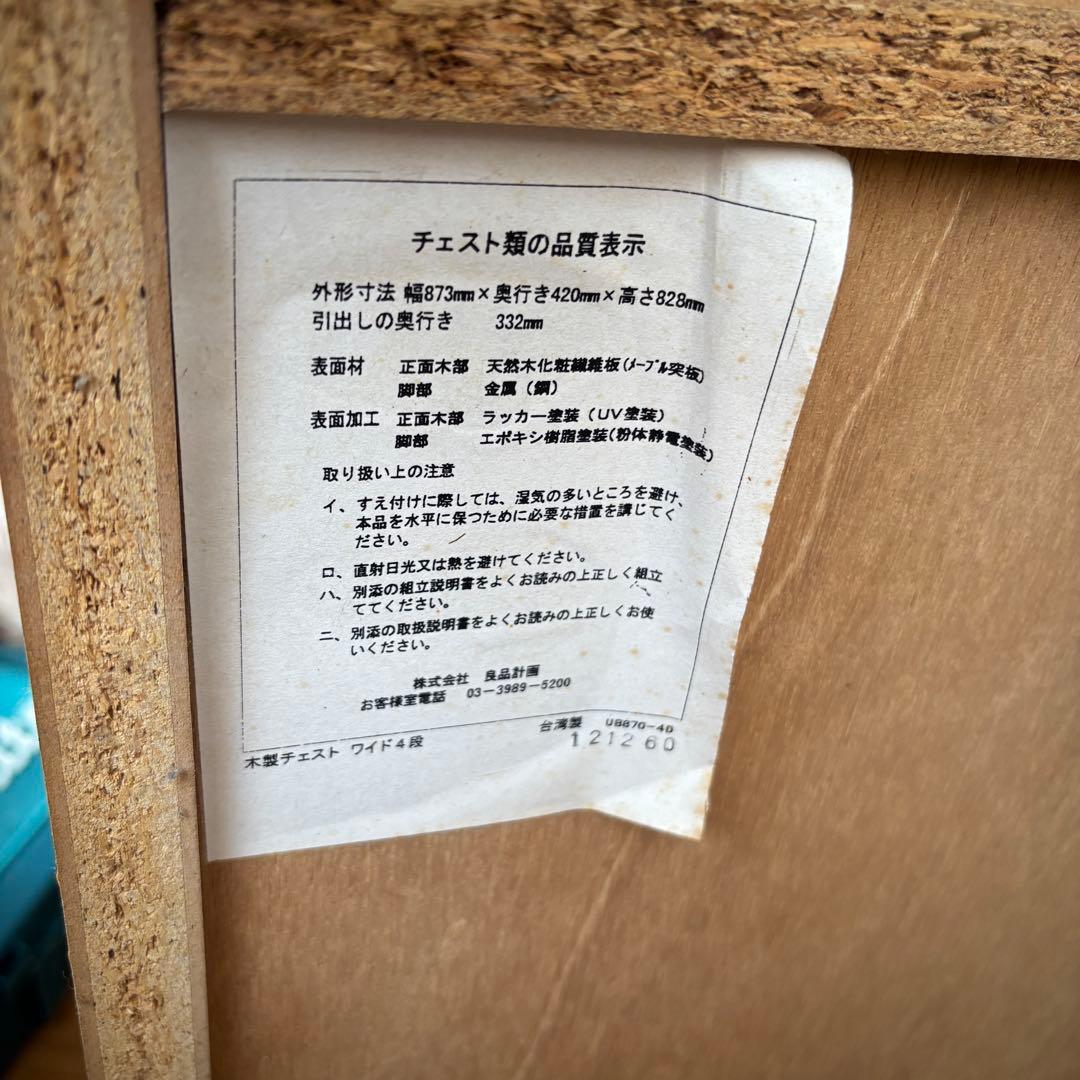 チェスト類の品質表示
外形寸法 幅873mm×奥行き420mm×高さ828mm
引出しの奥行き 332mm
表面材 正面木部 天然木化粧繊維板(メープル突板)
脚部 金属(鋼)
表面加工 正面木部 ラッカー塗装(UV塗装)
脚部 エポキシ樹脂塗装(粉体静電塗装)
取り扱い上の注意
イ、すえ付けに際しては、湿気の多いところを避け、
本品を水平に保つために必要な措置を講じてく
ださい。
ロ、直射日光又は熱を避けてください。
ハ、別添の組立説明書をよくお読みの上正しく組立
ててください。
ニ、別添の取扱説明書をよくお読みの上正しくお使
いください。
株式会社 良品計画
お客様室電話 03-3989-5200
台湾製
木製チェスト ワイド4段 121260